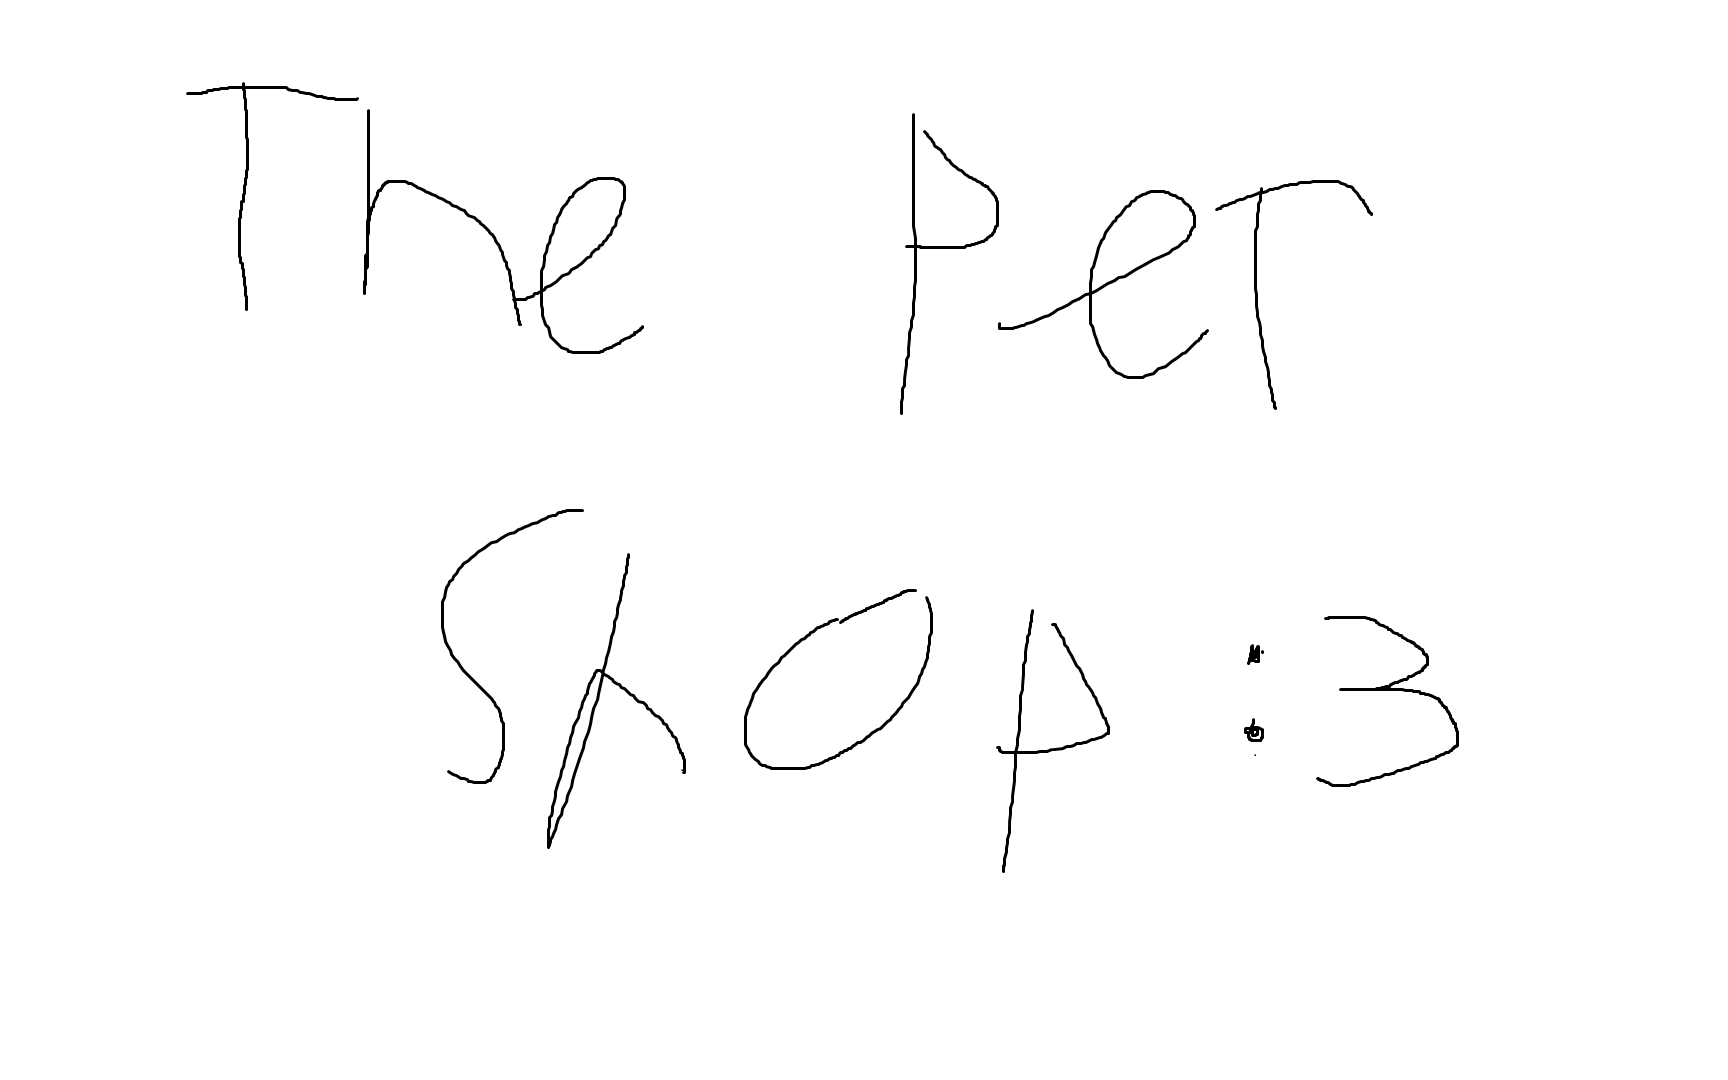 The Pet
Shop :3